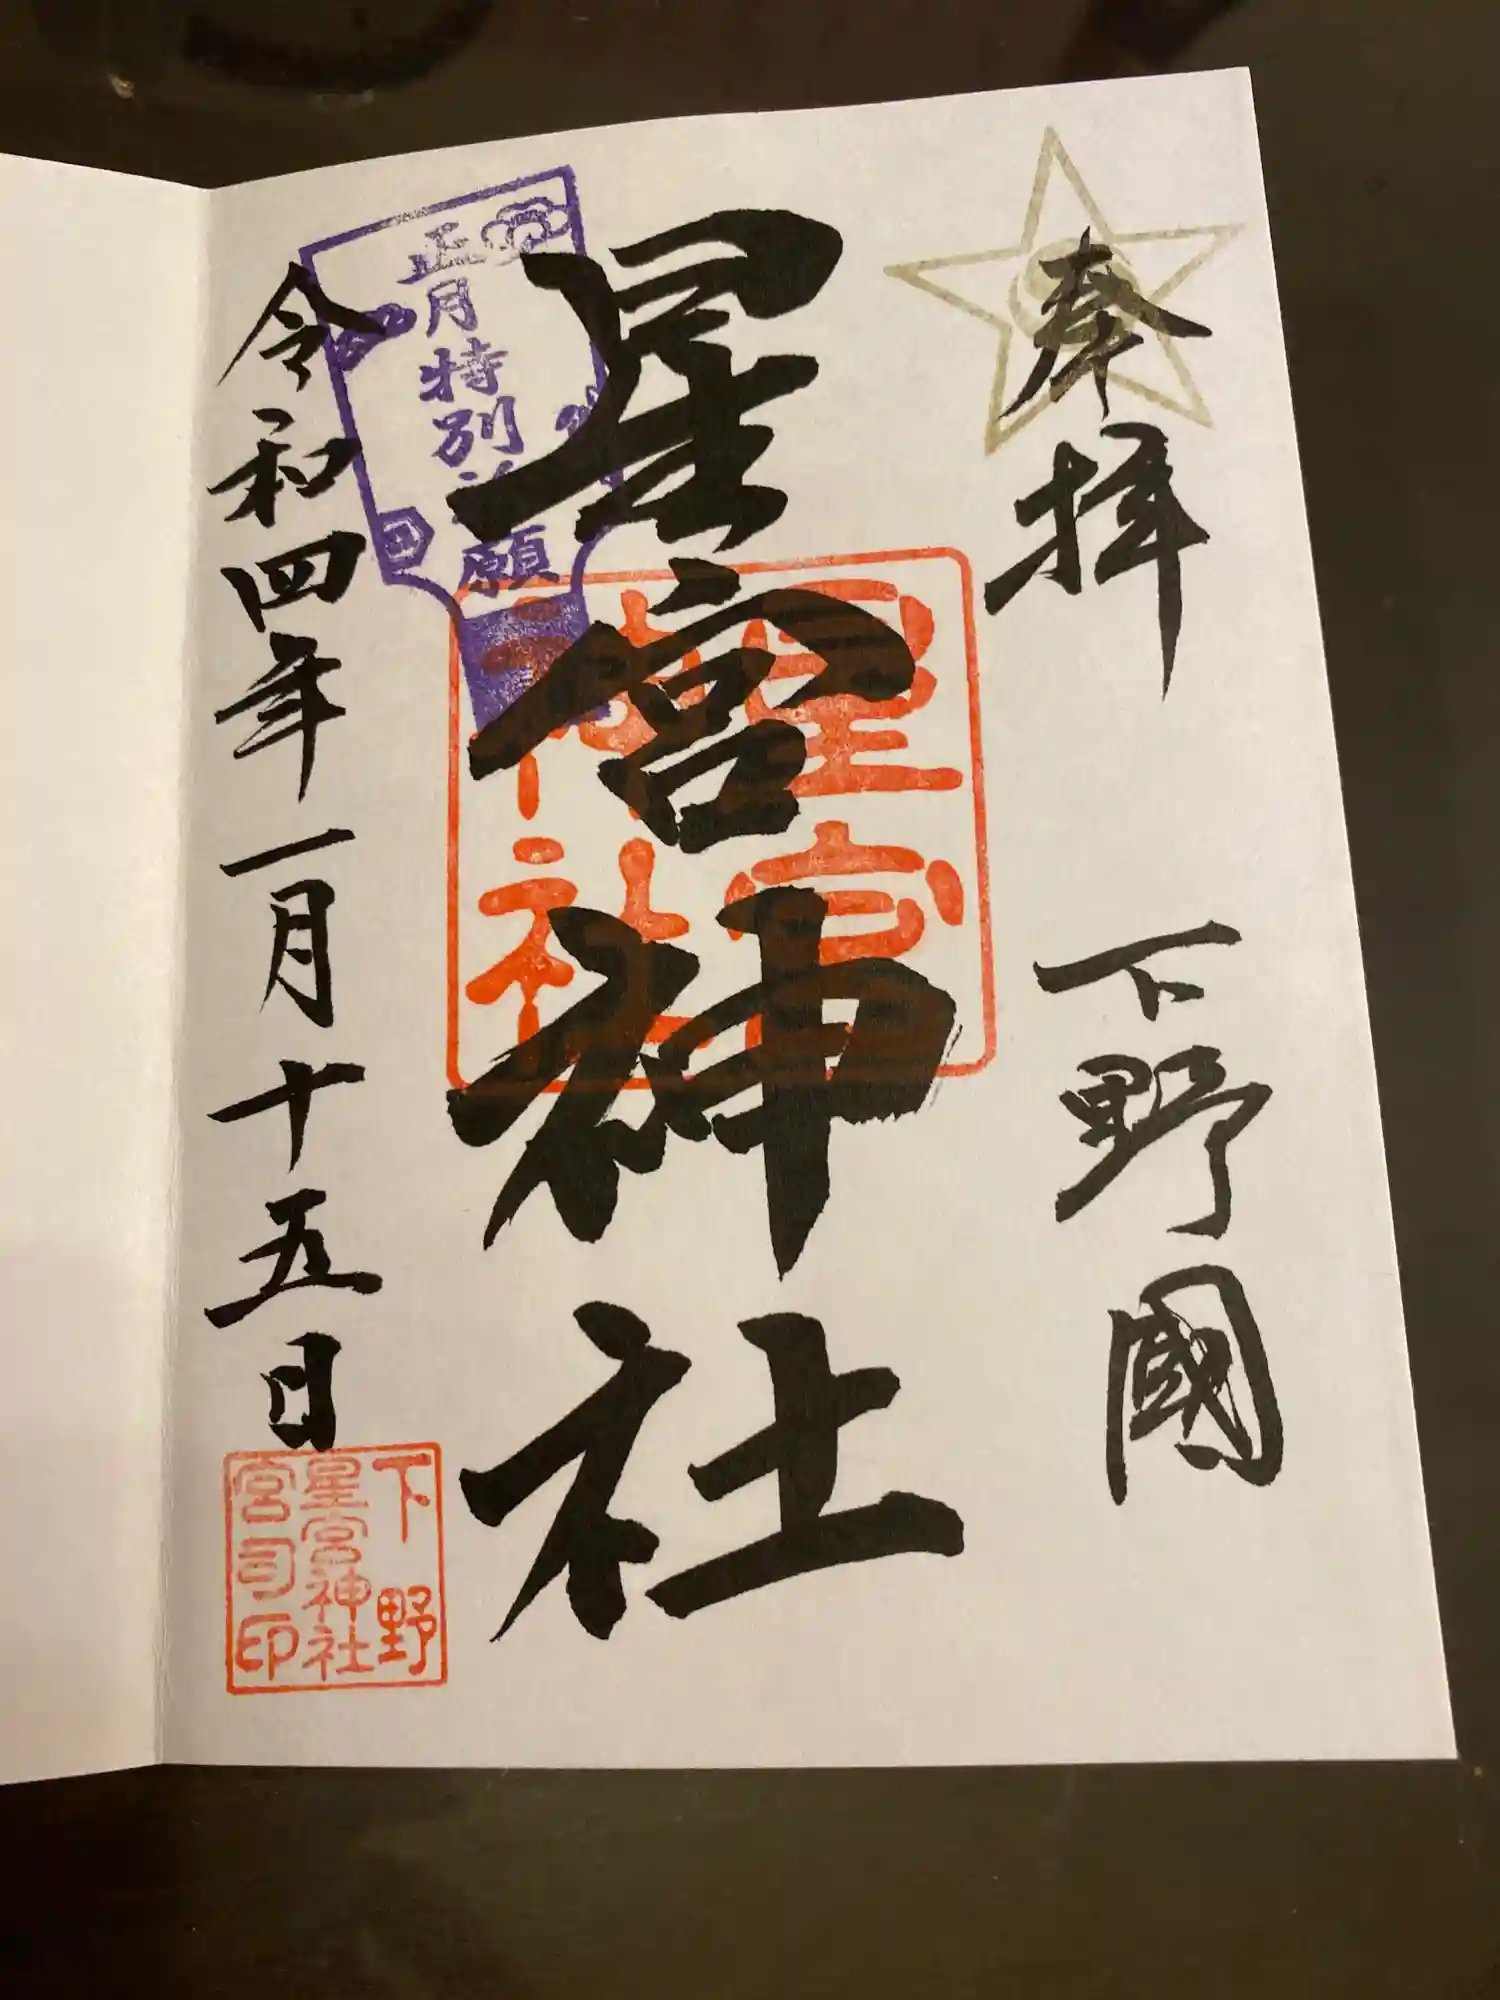 奉拝
下野國
星宮神社
星宮
神社
正月特別
願
令和四年一月十五日
下野
星宮神社
宮司印